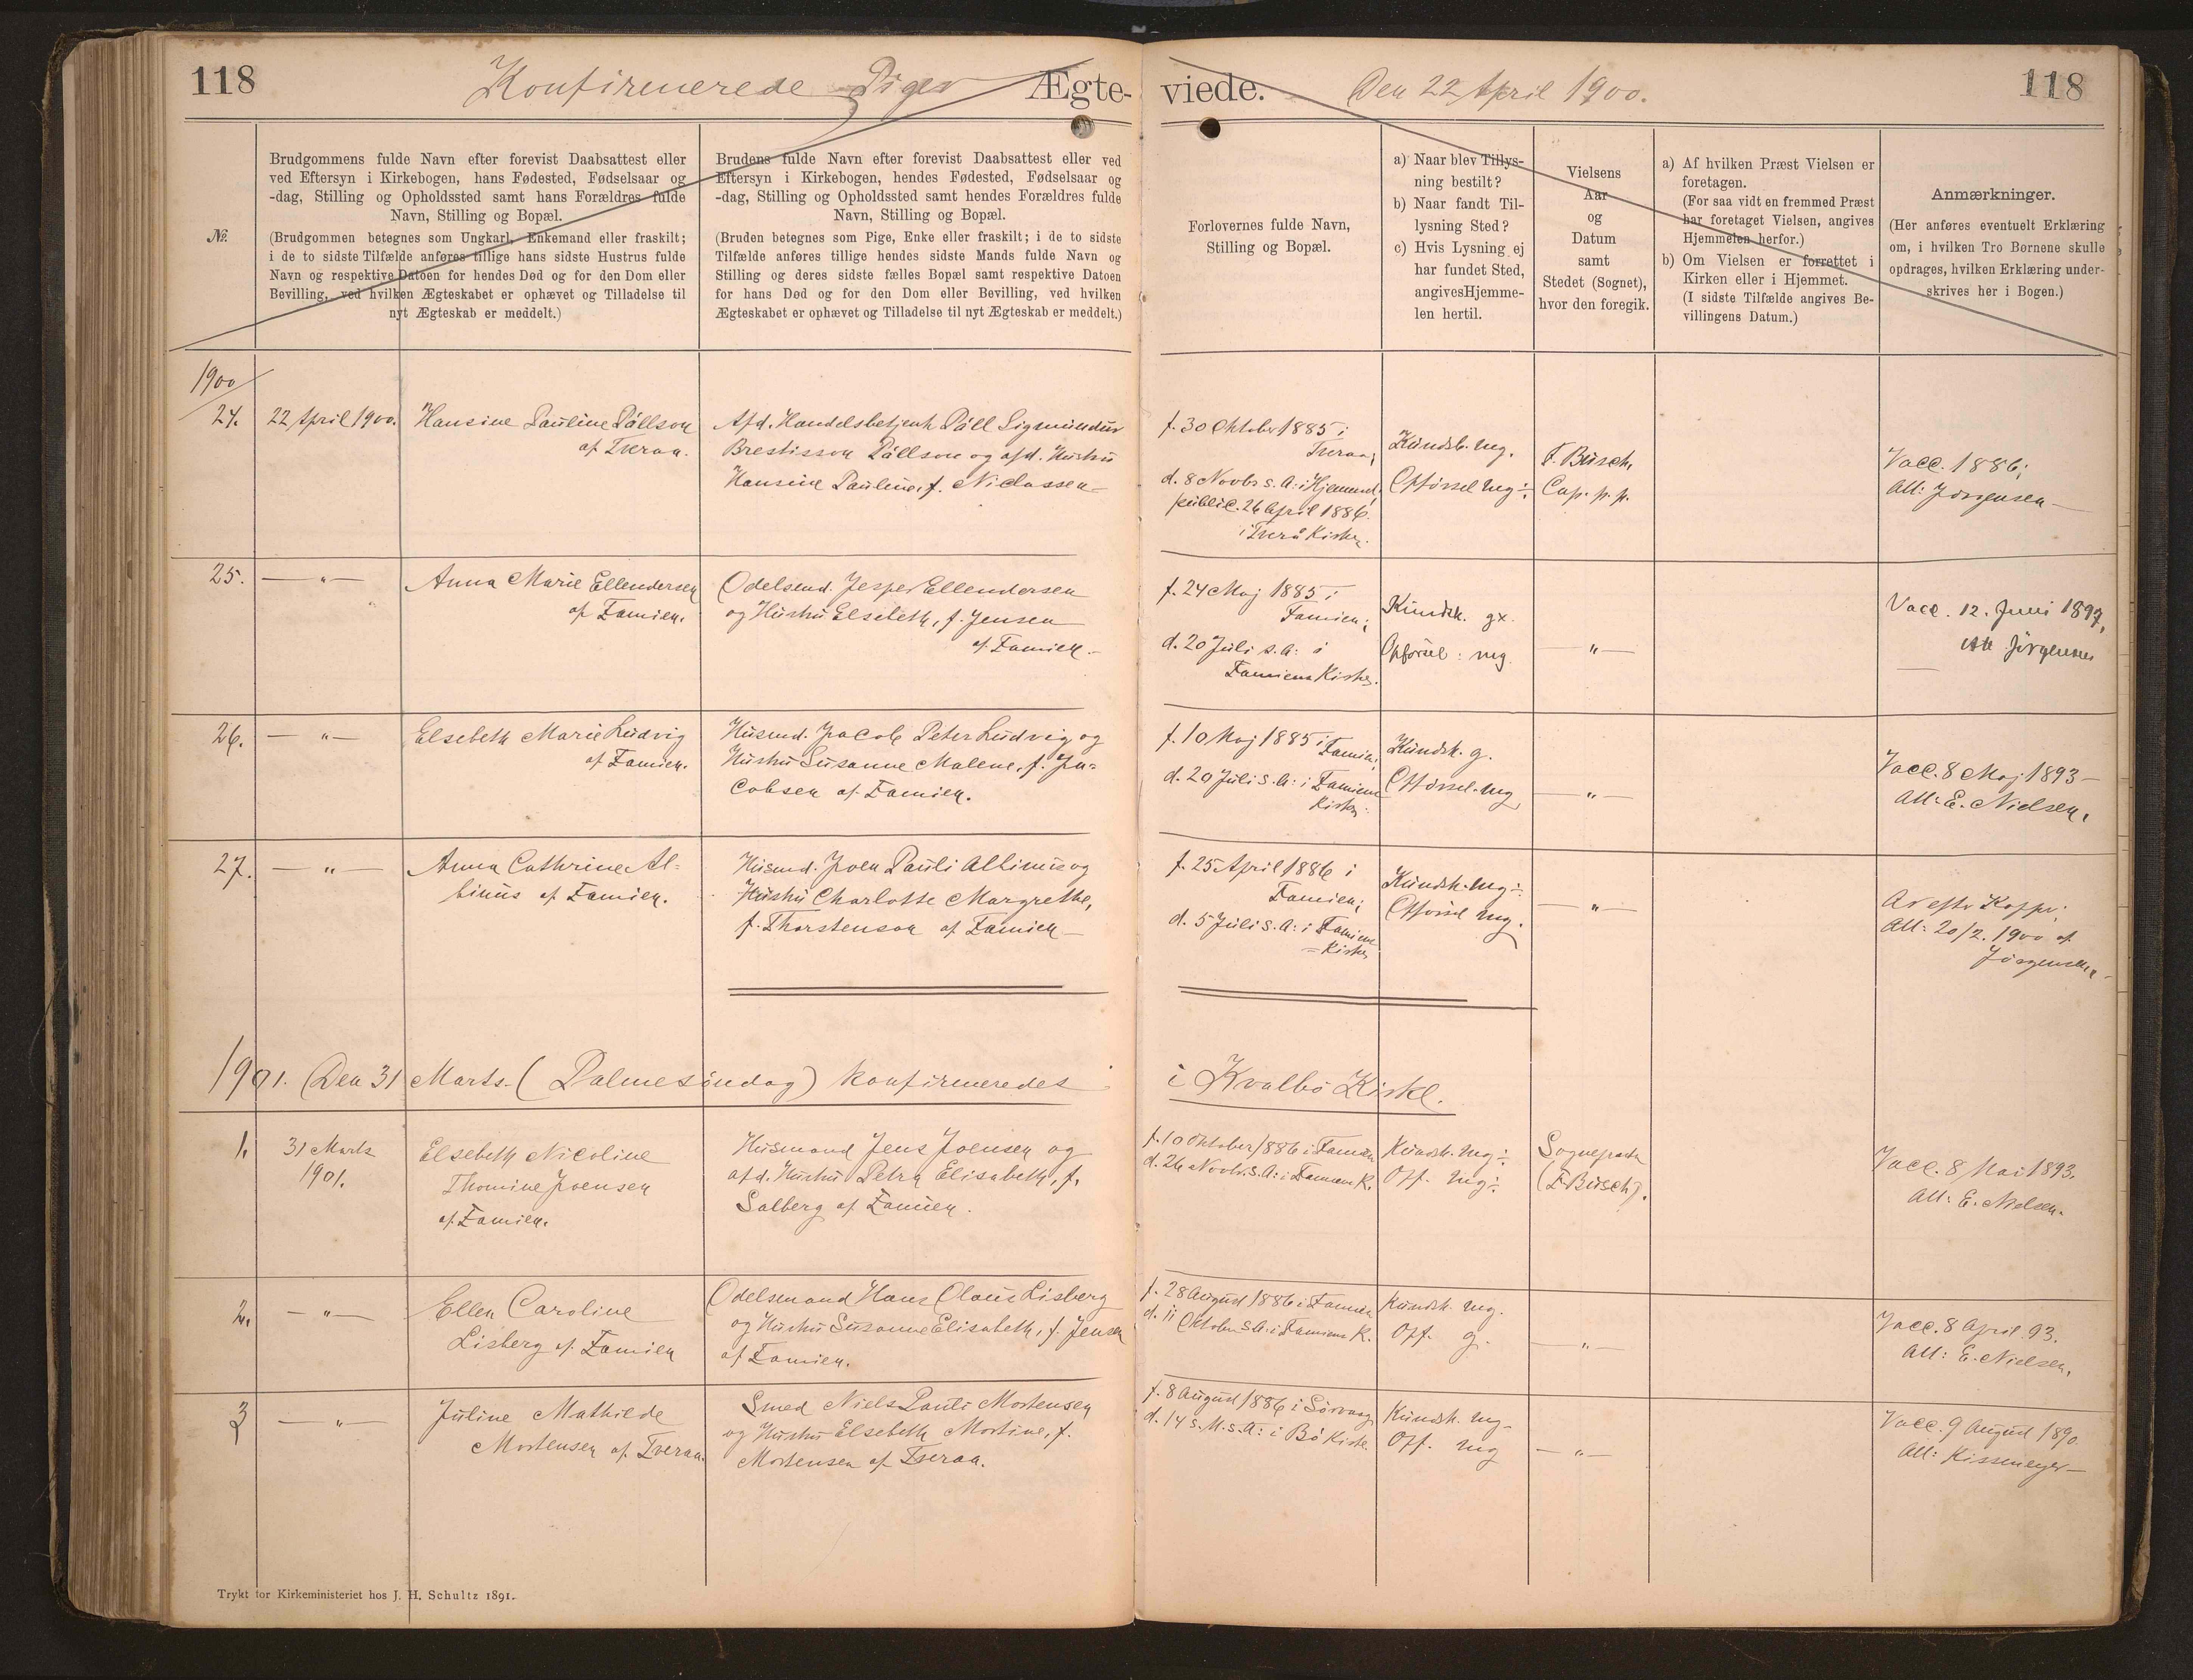 118
Konfirmerede Piger
Ægte-
viede.
Den 22 April 1900.
118
№
Brudgommens fulde Navn efter forevist Daabsattest eller
ved Eftersyn i Kirkebogen, hans Fødested, Fødselsaar og
-dag, Stilling og Opholdssted samt hans Forældres fulde
Navn, Stilling og Bopæl.
(Brudgommen betegnes som Ungkarl, Enkemand eller fraskilt;
i de to sidste Tilfælde anføres tillige hans sidste Hustrus fulde
Navn og respektive Datoen for hendes Død og for den Dom eller
Bevilling, ved hvilken Ægteskabet er ophævet og Tilladelse til
nyt Ægteskab er meddelt.)
Brudens fulde Navn efter forevist Daabsattest eller ved
Eftersyn i Kirkebogen, hendes Fødested, Fødselsaar og
-dag, Stilling og Opholdssted samt hendes Forældres fulde
Navn, Stilling og Bopæl.
(Bruden betegnes som Pige, Enke eller fraskilt; i de to sidste
Tilfælde anføres tillige hendes sidste Mands fulde Navn og
Stilling og deres sidste fælles Bopæl samt respektive Datoen
for hans Død og for den Dom eller Bevilling, ved hvilken
Ægteskabet er ophævet og Tilladelse til nyt Ægteskab er meddelt.)
Forlovernes fulde Navn,
Stilling og Bopæl.
a) Naar blev Tillys-
ning bestilt?
b) Naar fandt Til-
lysning Sted?
c) Hvis Lysning ej
har fundet Sted,
angivesHjemme-
len hertil.
Vielsens
Aar
og
Datum
samt
Stedet (Sognet),
hvor den foregik.
a) Af hvilken Præst Vielsen er
foretagen.
(For saa vidt en fremmed Præst
har foretaget Vielsen, angives
Hjemmelen herfor.)
b) Om Vielsen er forrettet i
Kirken eller i Hjemmet.
(I sidste Tilfælde angives Be-
villingens Datum.)
Anmærkninger.
(Her anføres eventuelt Erklæring
om, i hvilken Tro Børnene skulle
opdrages, hvilken Erklæring under-
skrives her i Bogen.)
1900
24.
22 April 1900.
Hansine Pauline Pállson
af Tveraa.
Afd. Handelsbetjent Páll Sigmundur
Brestisson Pállson og afd. Hustru
Hansine Pauline, f. Niclassen
f. 30 Oktober 1885 i
Tveraa;
d. 8 Novbr s. A: i Hjemmet,
public. 26 April 1886
i Tverå Kirke.
Kundsk. mg.
Opførsel mg÷
F. Busch,
Cap. p. p.
Vacc. 1886;
Att: Jörgensen
25.
— " —
Anna Marie Ellendersen
af Famien.
Odelsmd. Jesper Ellendersen
og Hustru Elsebeth, f. Jensen
af Famien.
f. 24 Maj 1885 i
Famien;
d. 20 Juli s. A: i
Famiens Kirke.
Kundsk. gx.
Opførsel: mg.
— " —
Vacc. 12. Juni 1897,
Att Jörgensen
26.
— " —
Elsebeth Marie Ludvig
af Famien.
Husmd. Jacob Peter Ludvig og
Hustru Susanne Malene, f. Ja=
cobsen af Famien.
f. 10 Maj 1885 i Famien;
d. 20 Juli s. A: i Famiens
Kirke
Kundsk. g.
Opførsel. mg
— " —
Vacc. 8 Maj 1893 —
Att: E. Nielsen.
27.
— " —
Anna Cathrine Al=
binus af Famien.
Husmd. Joen Pauli Albinus og
Hustru Charlotte Margrethe,
f. Thorstenson af Famien
f. 25 April 1886 i
Famien;
d. 5 Juli s. A: i Famiens
= Kirke
Kundsk. mg÷
Opførsel mg.
— " —
Ar efter Kopper;
Att: 20/2. 1900 af
Jörgensen
1901. Den 31 Marts. (Palmesöndag) konfirmeredes
i Kvalbö Kirke.
1.
31 Marts
1901.
Elsebeth Nicoline
Thomine Joensen
af Famien.
Husmand Jens Joensen og
afd. Hustru Petra Elisabeth, f.
Salberg af Famien.
f. 10 Oktober 1886 i Famien
d. 26 Novbr. s. A: i Famiens K.
Kundsk. mg÷
Opf. mg÷
Sognepræst
(F. Busch).
Vacc. 8 Mai 1893.
Att: E. Nielsen.
2.
— " —
Ellen Caroline
Lisberg af Famien
Odelsmand Hans Olaus Lisberg
og Hustru Susanne Elisabeth, f. Jensen
af Famien.
f. 28 August 1886 i Famien
d. 11 Oktober s. A: i Famiens K.
Kundsk. mg.
Opf. g.
— " —
Vacc. 8 April 93.
Att: E. Nielsen.
3
— " —
Juline Mathilde
Mortensen af Tveraa.
Smed Niels Pauli Mortensen
og Hustru Elsebeth Mortine, f.
Mortensen af Tveraa.
f. 8 August 1886 i Sörvaag
d. 14 s. M. s. A: i Bö Kirke.
Kundsk. mg
Opf. mg
— " —
Vacc. 9 August 1890
Att: Kissmeyer
Trykt for Kirkeministeriet hos J. H. Schultz 1891.